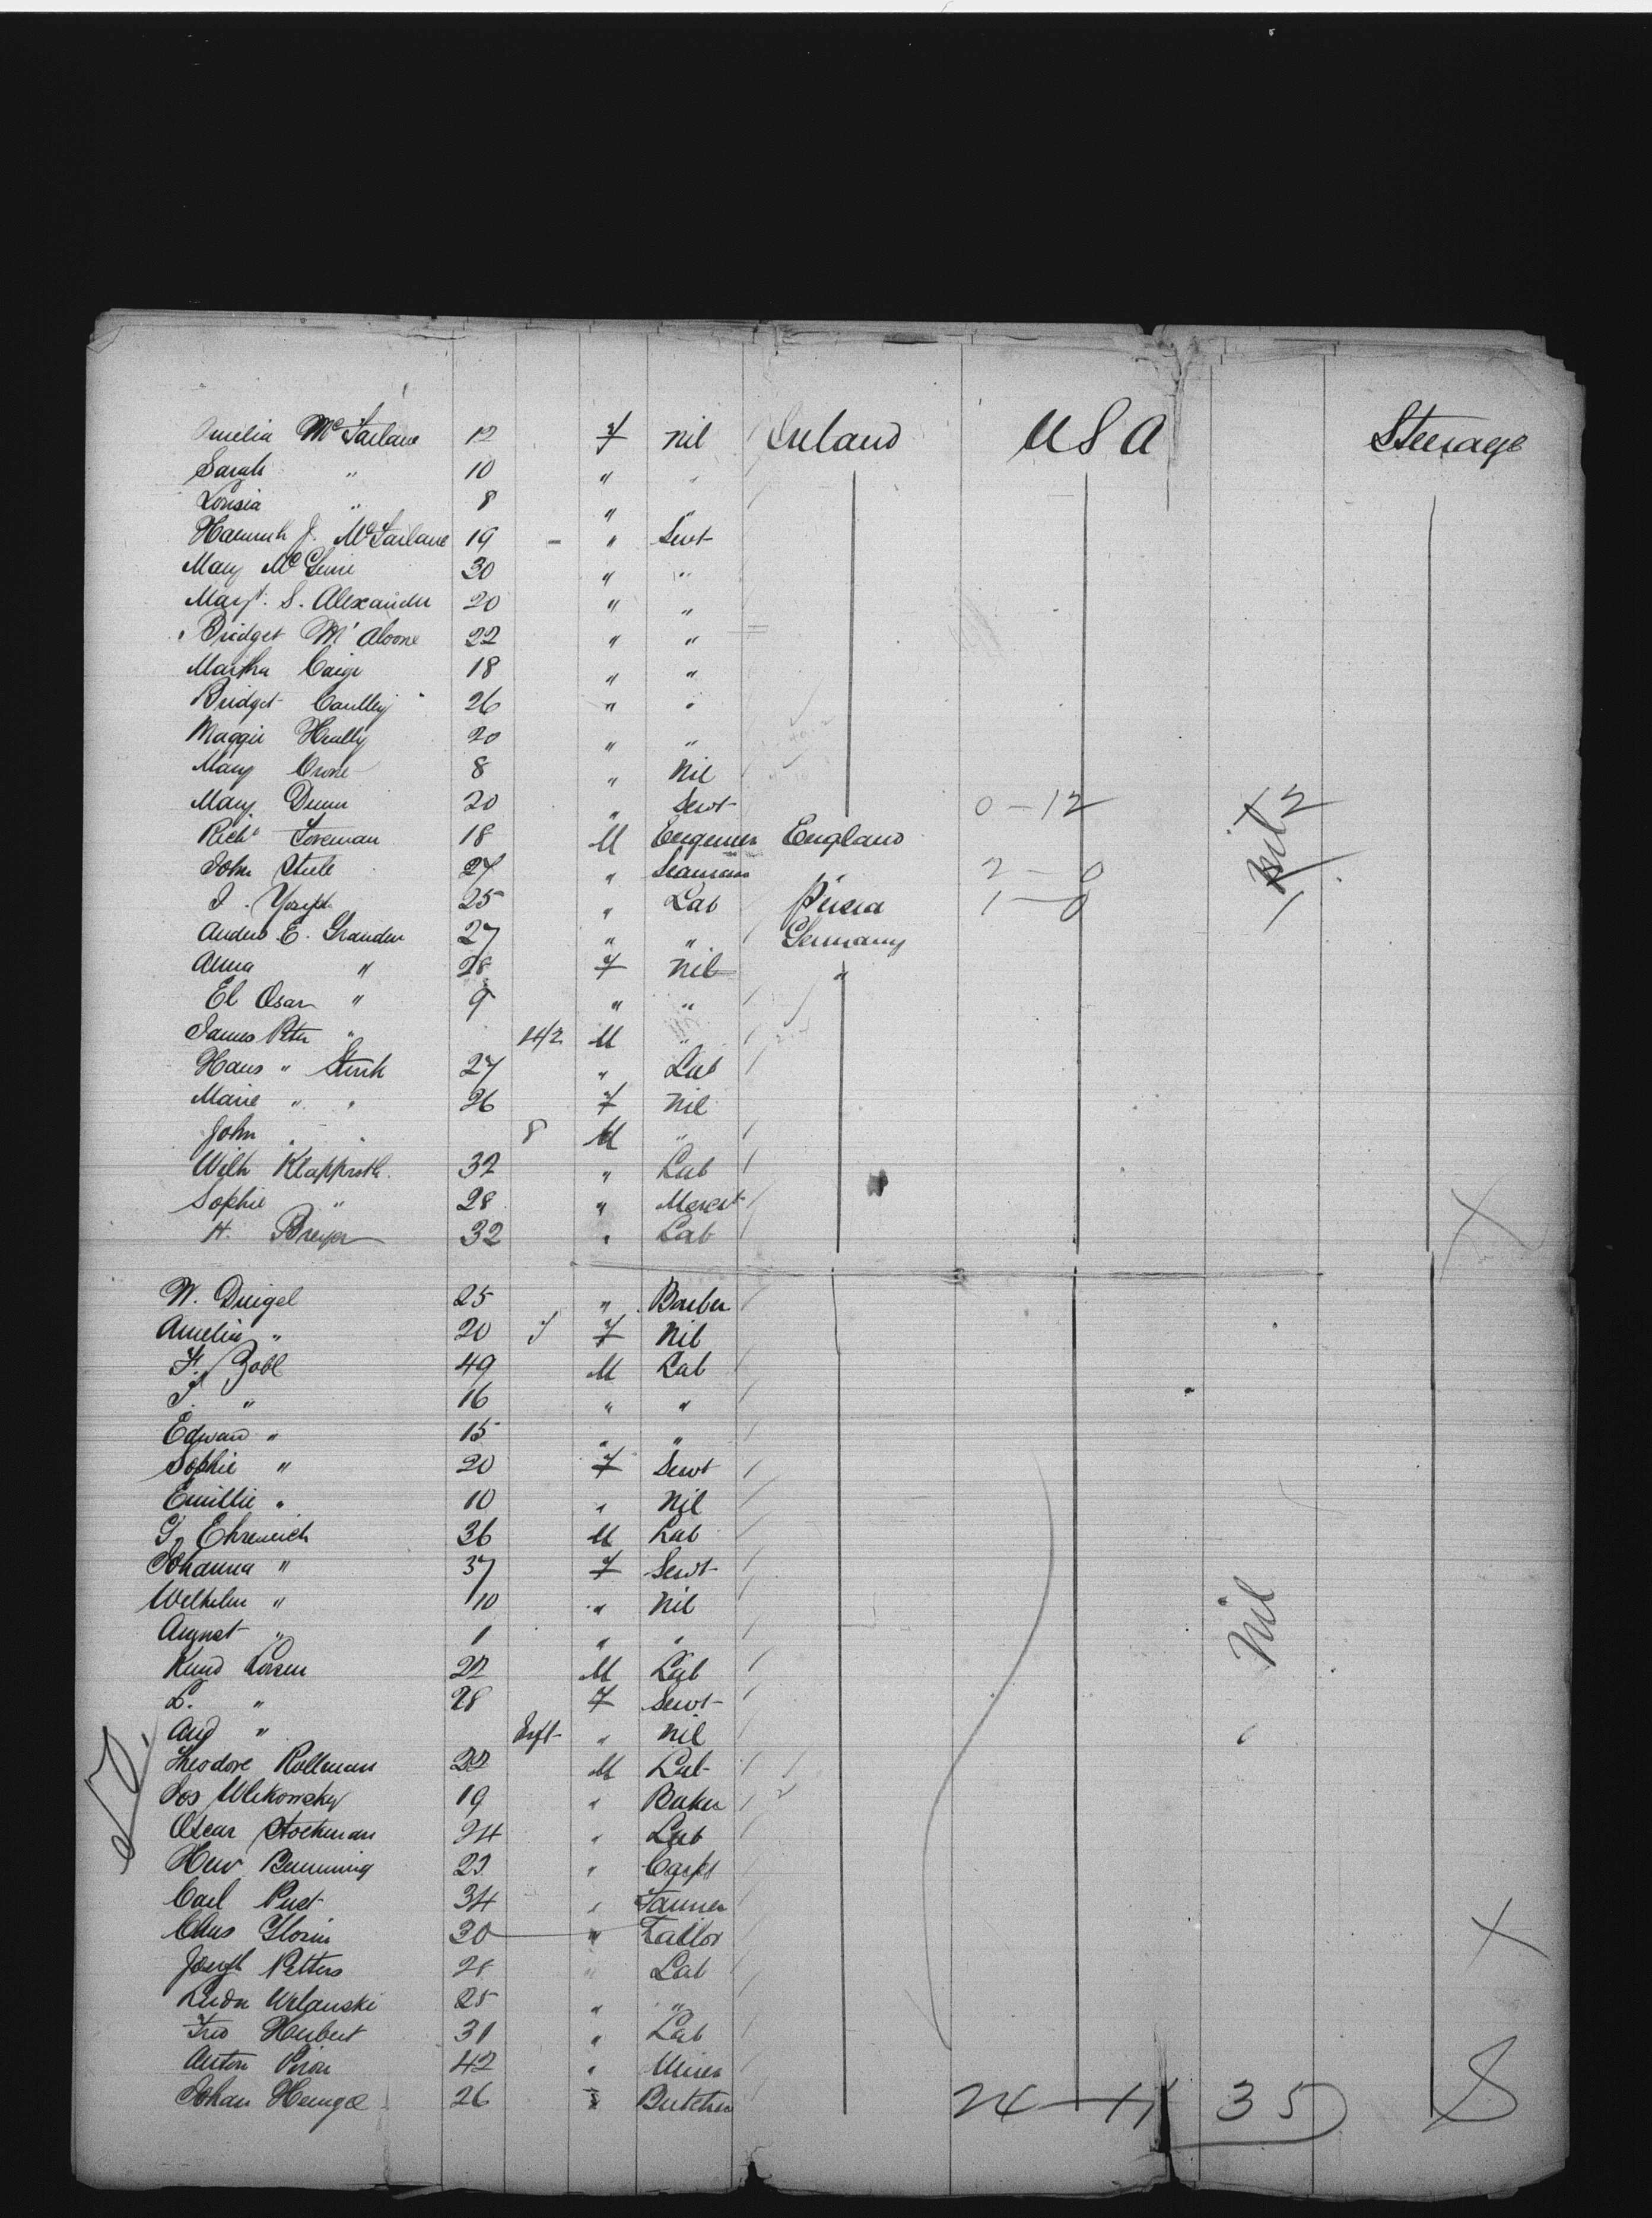 Amelia McFarlane 12 F nil Ireland USA Steerage
Sarah " 10 " "
Lousia " 8 " "
Hannah J. McFarlane 19 - " Servt
Mary McGuire 30 " "
Margt. S. Alexander 20 " "
Bridget M'Aloone 22 " "
Martha Caige 18 " "
Bridget Caulley 26 " "
Maggie Heally 20 " "
Mary Crone 8 " Nil
Mary Dunn 20 " Servt 0-12 12
Richd Foreman 18 M Engineer England nil
John Steele 27 " Seaman 2-0
J. Yosept 25 " Lab 1-0 1
Anders E. Grander 27 " " Germany
Anna " 28 F nil "
El Osar " 9 " "
James Peter " M "
Hans " Sturk 27 " Lab
Marie " " 26 F Nil
John " " 8 M "
Wilh Klapproth 32 " Lab
Sophie " 28 "
H. Breyer 32 " Lab
W. Driigel 25 " Barber
Amelia " 20 F Nil
F. Zobl 49 M Lab
J. " 16 " "
Edward " 15 " "
Sophie " 20 F Servt
Emillie " 10 " Nil
G. Ehrenreich 36 M Lab
Johanna " 37 F Servt
Welhelm " 10 " Nil
August " 1 " " Nil
Knud Lorsen 22 M Lab
L. " 28 F Servt
Aug " Inft " Nil
Theodore Rollman 22 M Lab
Jos Wlekowsky 19 " Baker
Oscar Stockman 24 " Lab
Benning " Carpt
Carl Pust 34 "
30 " Tailor
Joseph Petters " Lab
Urlanski 25 " "
Fred Herbert 31 " Lab
Anton 42 " Miner
Johan 26 " Butcher 24-11 35